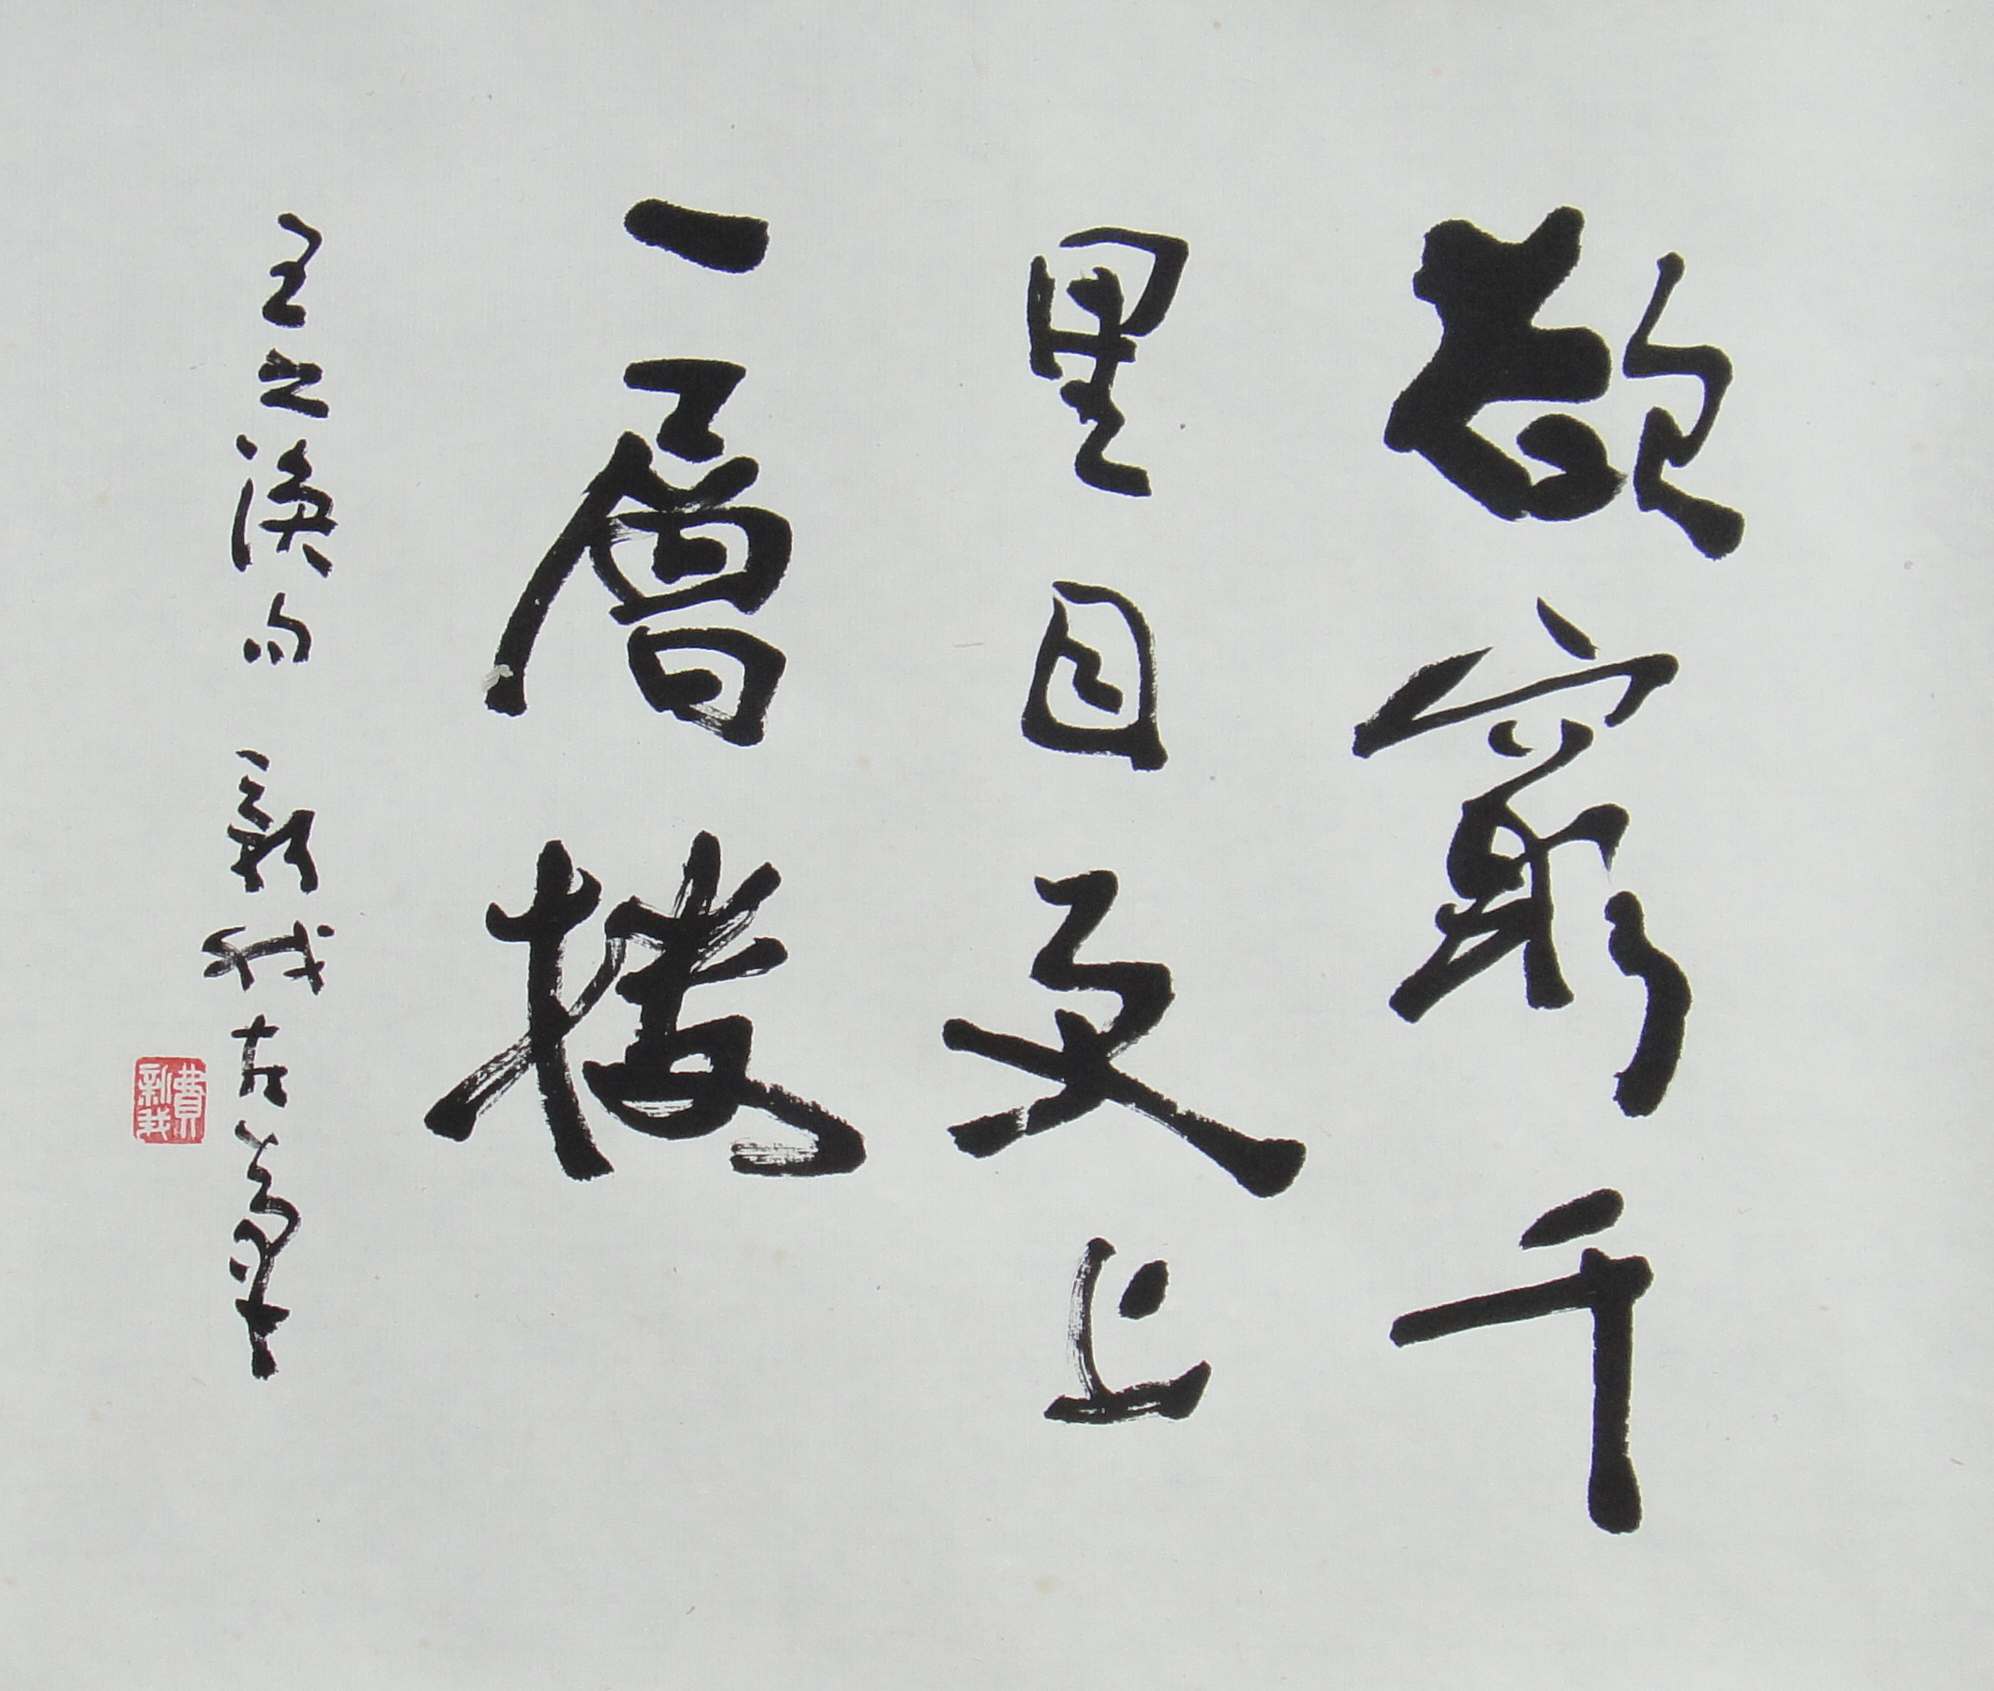 欲窮千
里目更上
一層樓
王之渙句 新我左筆
費新我